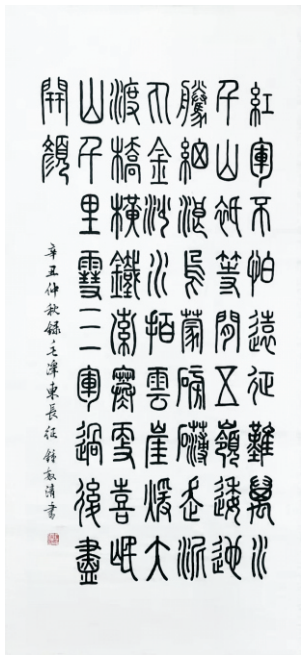 紅軍不怕遠征難萬水
千山祇等閒五嶺逶迤
騰細浪烏蒙磅礴走泥
丸金沙水拍雲崖煖大
渡橋橫鐵索寒更喜岷
山千里雪三軍過後盡
開顏
辛丑仲秋錄毛澤東長征 清書